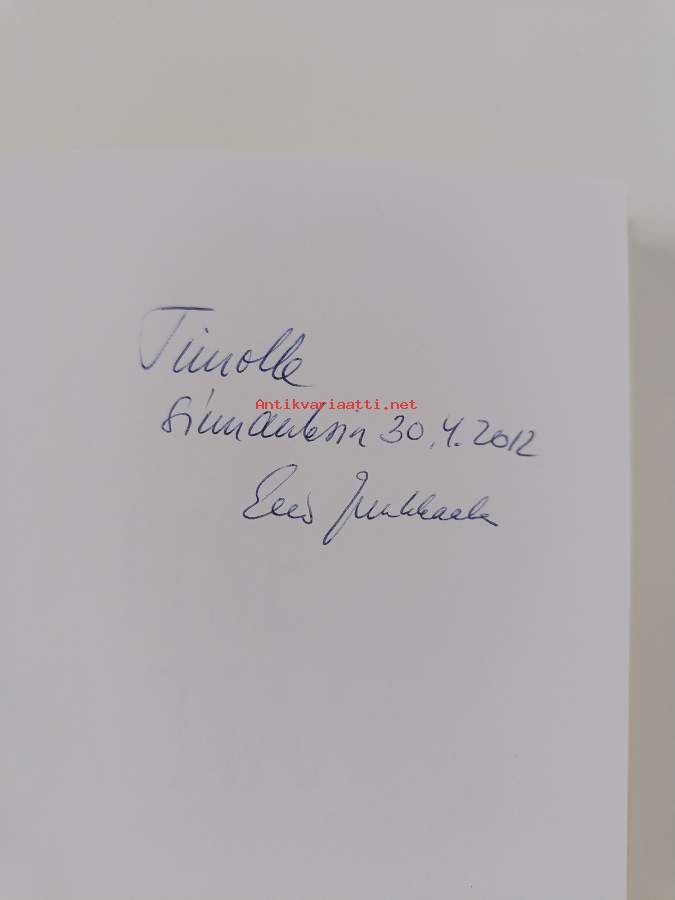 Timolle
Antikvariaatti.net
Siunauksin 30.4.2012
Eero Junkkaala